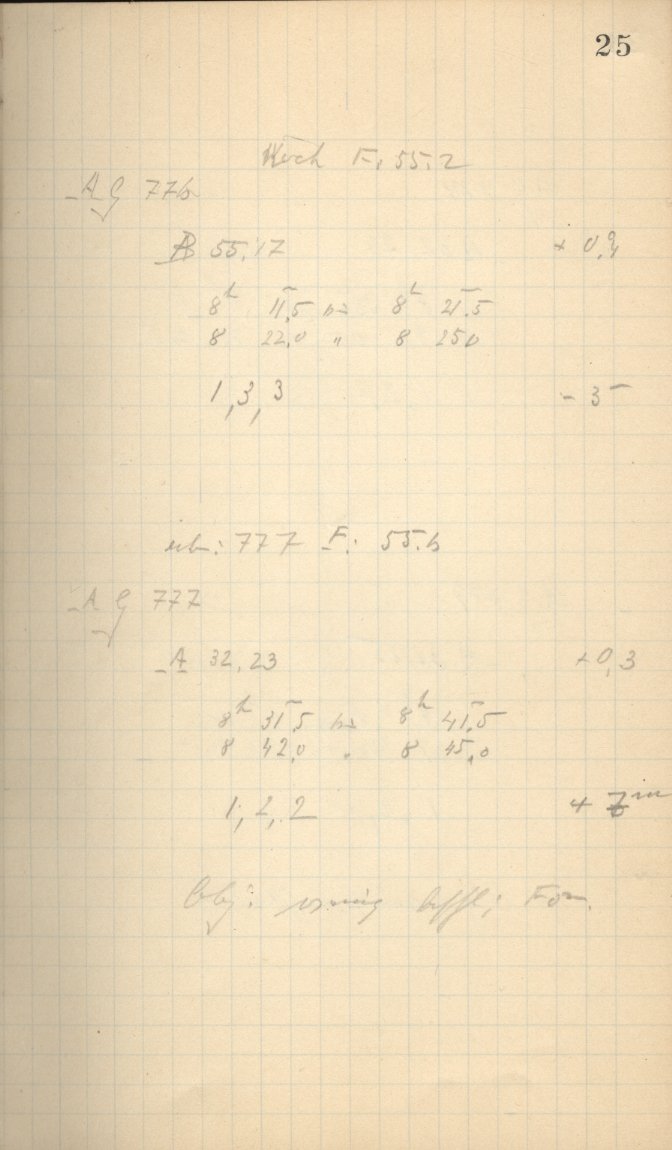 25
Koch F. 55.2
A G 776
B 55,17 + 0,4
8h 11,5 bis 8h 21,5
8 22,0 " 8 25,0
1, 3, 3 - 3m
777 F: 55.6
A G 777
A 32,23 +0,3
8h 31,5 bis 8h 41,5
8 42,0 " 8 45,0
1, 2, 2
Obj: